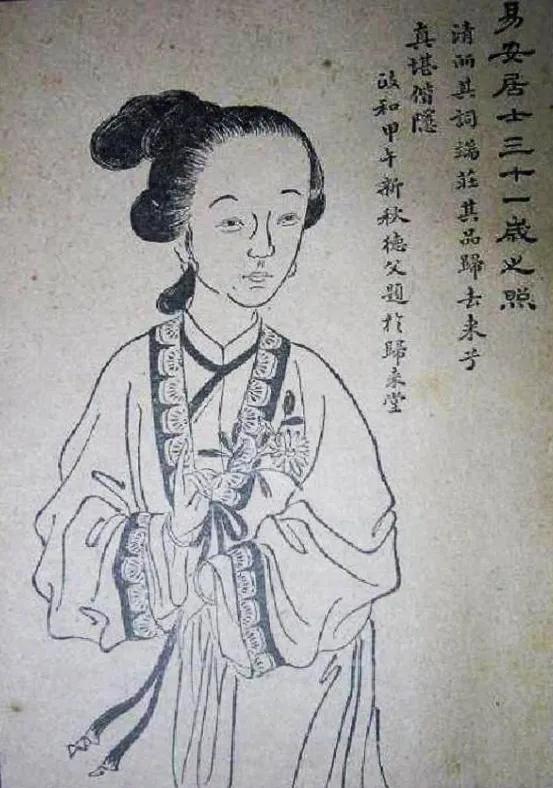 易安居士三十一歲之照
清丽其詞端莊其品歸去来兮
真堪偕隱
政和甲午新秋德父題於歸来堂